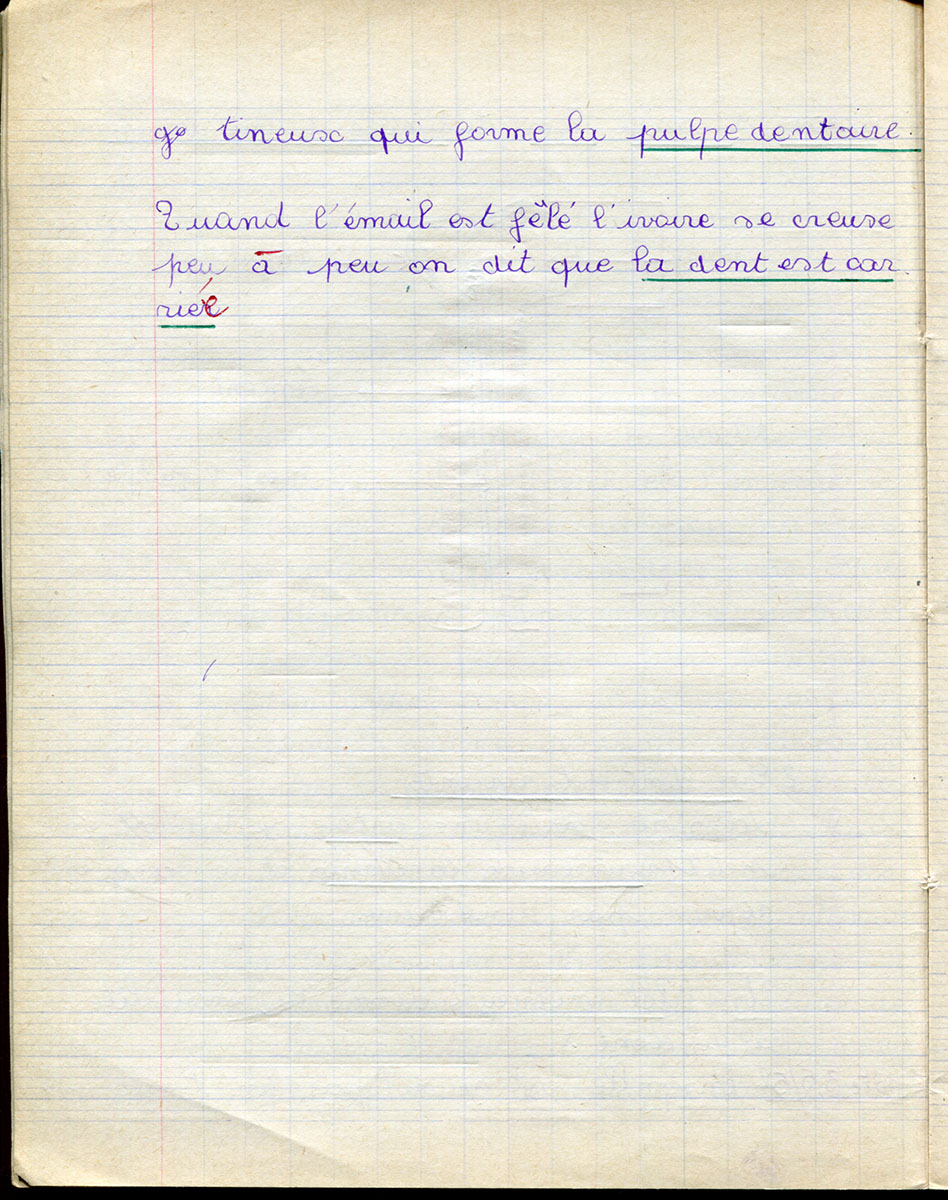 ge tineuse qui forme la pulpe dentaire.
Quand l'émail est fêlé l'ivoire se creuse
peu à peu on dit que la dent est car
riée